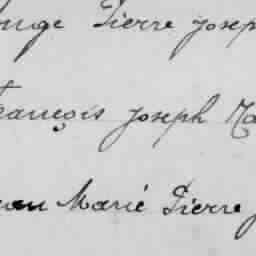 Pierre Joseph
François Joseph
Marié Pierre